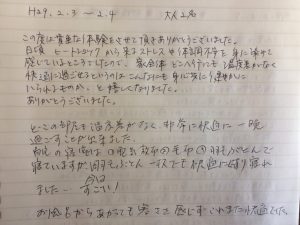 H29.2.3 ー 2.4 大人2名
この度は貴重な体験をさせて頂きありがとうございました。
日頃 ヒートショックから来るストレスや体調不良を身に染みて
感じているところでしたので、家全体 どこへ行っても温度差がなく
快適に過ごせるというのはこんなにも身に安らぐ
いられるものか、と嬉しくなりました。
ありがとうございました。
どこの部屋も温度差がなく、非常に快適に一晩
過ごすことが出来ました。
自宅の寝室は 毛布 羽毛ふとんで
寝ていますが、羽毛ふとん一枚でも快適に眠れ
ました… すごい!
お風呂からあがっても寒さを感じず、これまた快適でした。